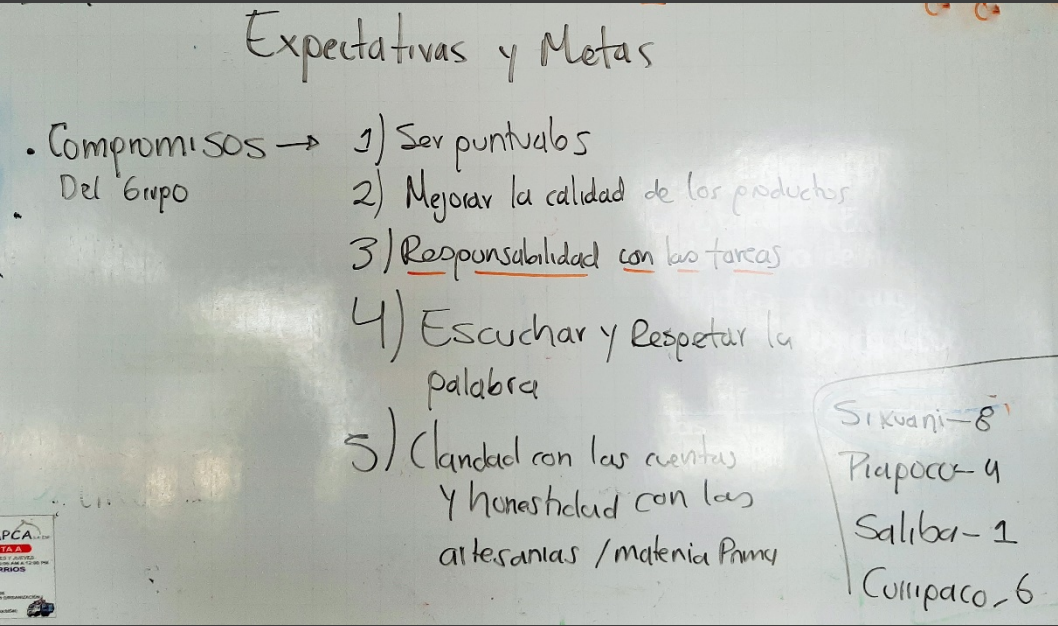 Expectativas y Metas
. Compromisos → 1) Ser puntuales
Del Grupo
2) Mejorar la calidad de los productos
3) Responsabilidad con las tareas
4) Escuchar y Respetar la
palabra
5) Claridad con las cuentas
y honestidad con las
artesanias / materia Prima
Sikuani - 8
Piapoco - 4
Saliba - 1
Curripaco - 6
PCA
TA A
RRIOS